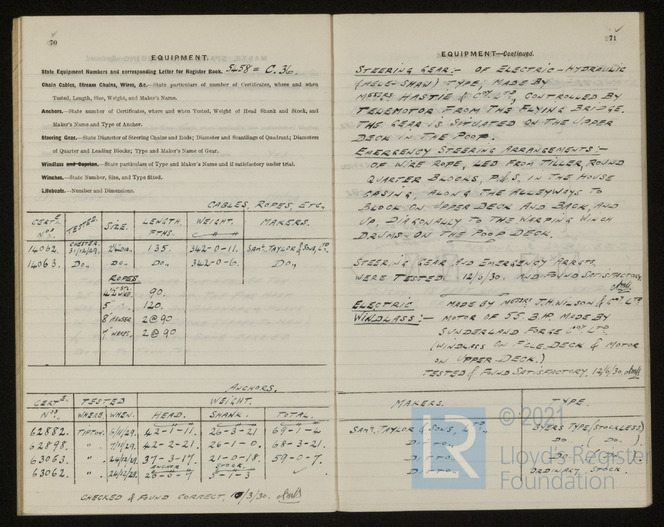 70
EQUIPMENT.
State Equipment Numbers and corresponding Letter for Register Book. 5458 = C.36.
Chain Cables, Stream Chains, Wires, &c.—State particulars of number of Certificates, where and when
Tested, Length, Size, Weight, and Maker's Name.
Anchors.—State number of Certificates, where and when Tested, Weight of Head Shank and Stock, and
Maker's Name and Type of Anchor.
Steering Gear.—State Diameter of Steering Chains and Rods; Diameter and Scantlings of Quadrant; Diameters
of Quarter and Leading Blocks; Type and Maker's Name of Gear.
Windlass and Capstan.—State particulars of Type and Maker's Name and if satisfactory under trial.
Winches.—State Number, Size, and Type fitted.
Lifeboats.—Number and Dimensions.
CABLES, ROPES, ETC.
CERTE. Nos. TESTED. SIZE. LENGTH. FTHS. WEIGHT. MAKERS.
14062. CHESTER. 31/12/29. 135. 342-0-11. SAML. TAYLOR & SONS, LTD.
14063. DO. DO. DO. 342-0-6. DO.
ROPES
90.
5" 120.
8" 2 @ 90
7" 2 @ 90
ANCHORS.
CERTE. TESTED WEIGHT.
Nos. WHERE. WHEN. HEAD. SHANK. TOTAL.
62882. TIPTON. 42-1-11. 26-3-21 69-1-4
62898. " 42-2-21. 26-1-0. 68-3-21.
63063. " 37-3-17. 21-0-18. 59-0-7.
63062. " ANCHOR STOCK.
5-1-3
CHECKED & FOUND CORRECT,
71
EQUIPMENT—Continued.
STEERING GEAR:- OF ELECTRIC-HYDRAULIC
(HELE-SHAW) TYPE, MADE BY
MESSRS HASTIE & COY LTD, CONTROLLED BY
TELEMOTOR FROM THE FLYING BRIDGE.
THE GEAR IS SITUATED ON THE UPPER
DECK IN THE POOP.
EMERGENCY STEERING ARRANGEMENTS:-
OF WIRE ROPE, LED FROM TILLER, ROUND
QUARTER BLOCKS, P&S, IN THE HOUSE
CASING, ALONG THE ALLEYWAYS TO
BLOCK ON UPPER DECK AND BACK, AND
UP, DIAGONALLY TO THE WARPING WINCH
DRUMS ON THE POOP DECK.
STEERING GEAR AND EMERGENCY ARRGTS.
WERE TESTED 12/6/30. AND FOUND SATISFACTORY.
ELECTRIC MADE BY MESSRS J.H. WILSON & COY LTD
WINDLASS:- MOTOR OF 55 B.P. MADE BY
SUNDERLAND FORGE COY LTD.
(WINDLASS ON F'CLE DECK & MOTOR
ON UPPER DECK.)
TESTED & FOUND SATISFACTORY, 12/6/30.
MAKERS. TYPE.
SAML. TAYLOR & SONS, LTD., BYERS TYPE (STOCKLESS)
DITTO. DO. (DO.)
DITTO.
DITTO. ORDINARY STOCK.
LR
© 2021
Lloyd's Register
Foundation